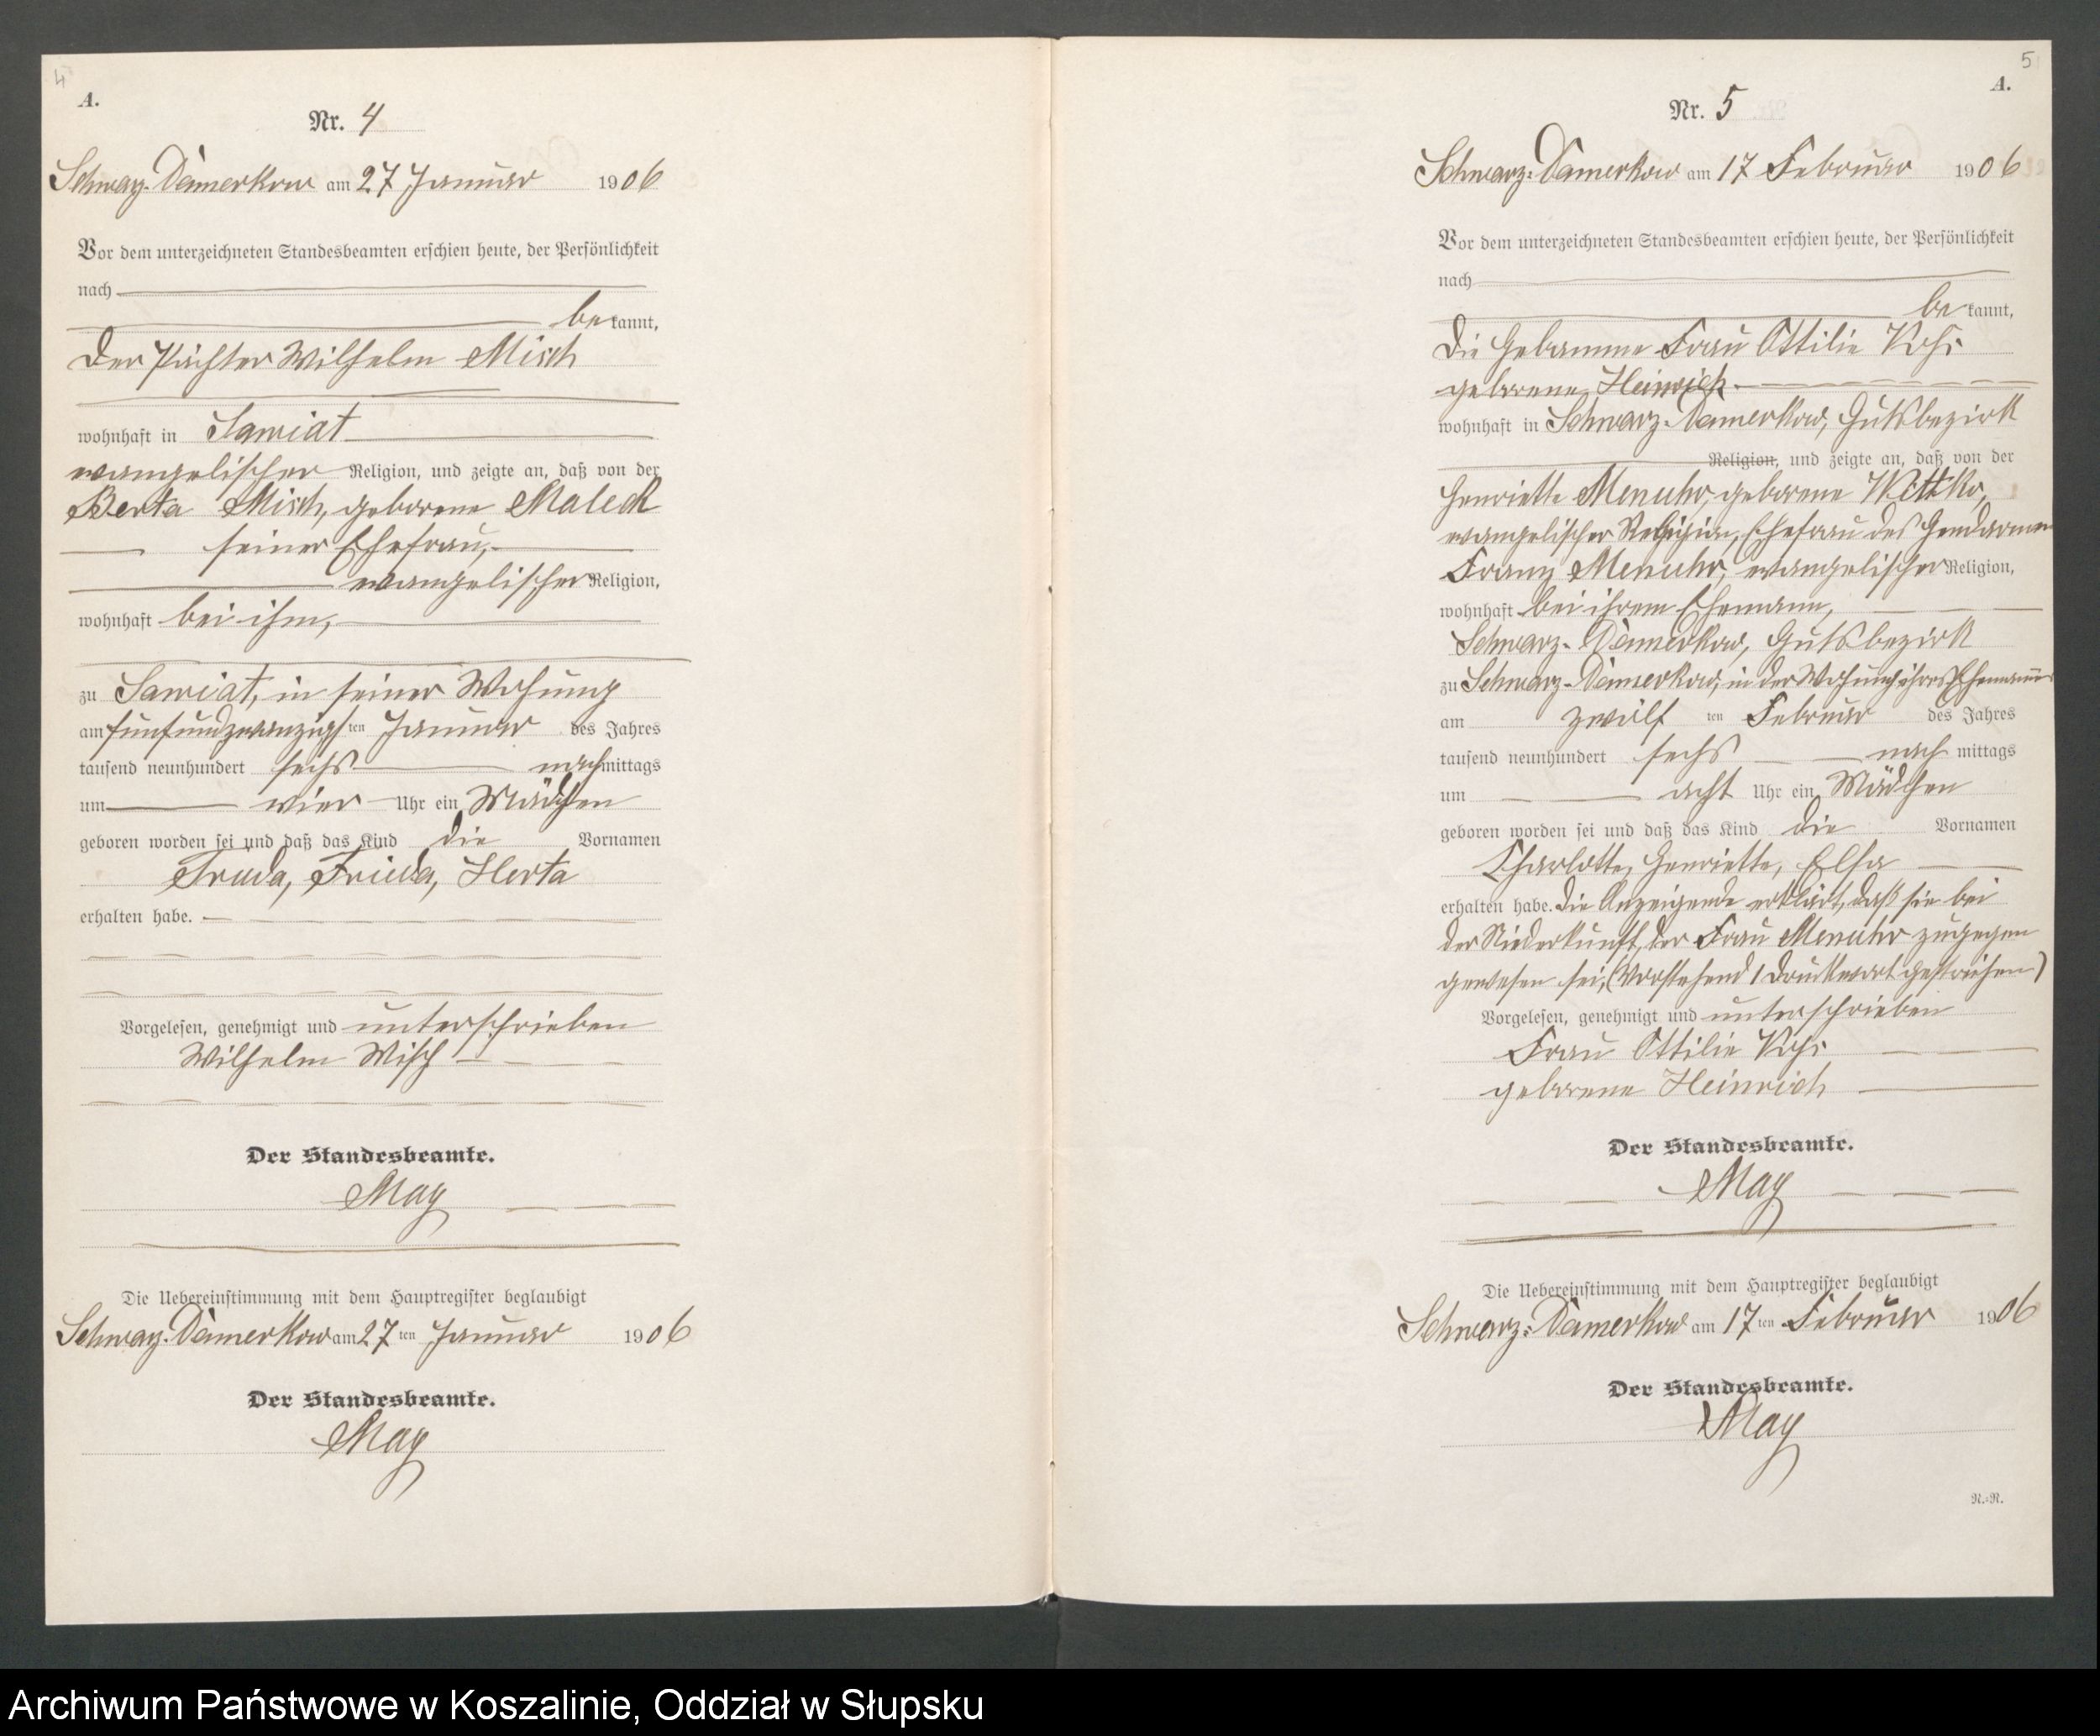 4
A.
Nr. 4
Schwarz-Damerkow am 27 Januar 1906
Vor dem unterzeichneten Standesbeamten erschien heute, der Persönlichkeit
nach
bekannt,
der Pächter Wilhelm Misch
wohnhaft in Sawiat
evangelischer Religion, und zeigte an, daß von der
Berta Misch, geborene Maleck
seiner Ehefrau,
evangelischer Religion,
wohnhaft bei ihm,
zu Sawiat, in seiner Wohnung
am fünfundzwanzigsten Januar des Jahres
tausend neunhundert sechs nachmittags
um vier Uhr ein Mädchen
geboren worden sei und daß das Kind die Vornamen
Truda, Frieda, Herta
erhalten habe.
Vorgelesen, genehmigt und unterschrieben
Wilhelm Misch
Der Standesbeamte.
May
Die Uebereinstimmung mit dem Hauptregister beglaubigt
Schwarz-Damerkow am 27 ten Januar 1906
Der Standesbeamte.
May
5
A.
Nr. 5
Schwarz-Damerkow am 17 Februar 1906
Vor dem unterzeichneten Standesbeamten erschien heute, der Persönlichkeit
nach
bekannt,
die Hebamme Frau Ottilie
geborene Heinrich
wohnhaft in Schwarz-Damerkow, Gutsbezirk
Religion, und zeigte an, daß von der
Henriette Menuhr, geborene Wittko,
evangelischer Religion, Ehefrau des Gendarmen
Franz Menuhr, evangelischer Religion,
wohnhaft bei ihrem Ehemann,
Schwarz-Damerkow, Gutsbezirk
zu Schwarz-Damerkow, in der Wohnung ihres Ehemannes
am zwölf ten Februar des Jahres
tausend neunhundert sechs nachmittags
um acht Uhr ein Mädchen
geboren worden sei und daß das Kind die Vornamen
Charlotte, Henriette, Elsa
erhalten habe. Die Anzeigende erklärt, daß sie bei
der Niederkunft der Frau Menuhr zugegen
gewesen sei, (Vorstehend 1 Druckwort gestrichen)
Vorgelesen, genehmigt und unterschrieben
Frau Ottilie
geborene Heinrich
Der Standesbeamte.
May
Die Uebereinstimmung mit dem Hauptregister beglaubigt
Schwarz-Damerkow am 17 ten Februar 1906
Der Standesbeamte.
May
N.=N.
Archiwum Państwowe w Koszalinie, Oddział w Słupsku